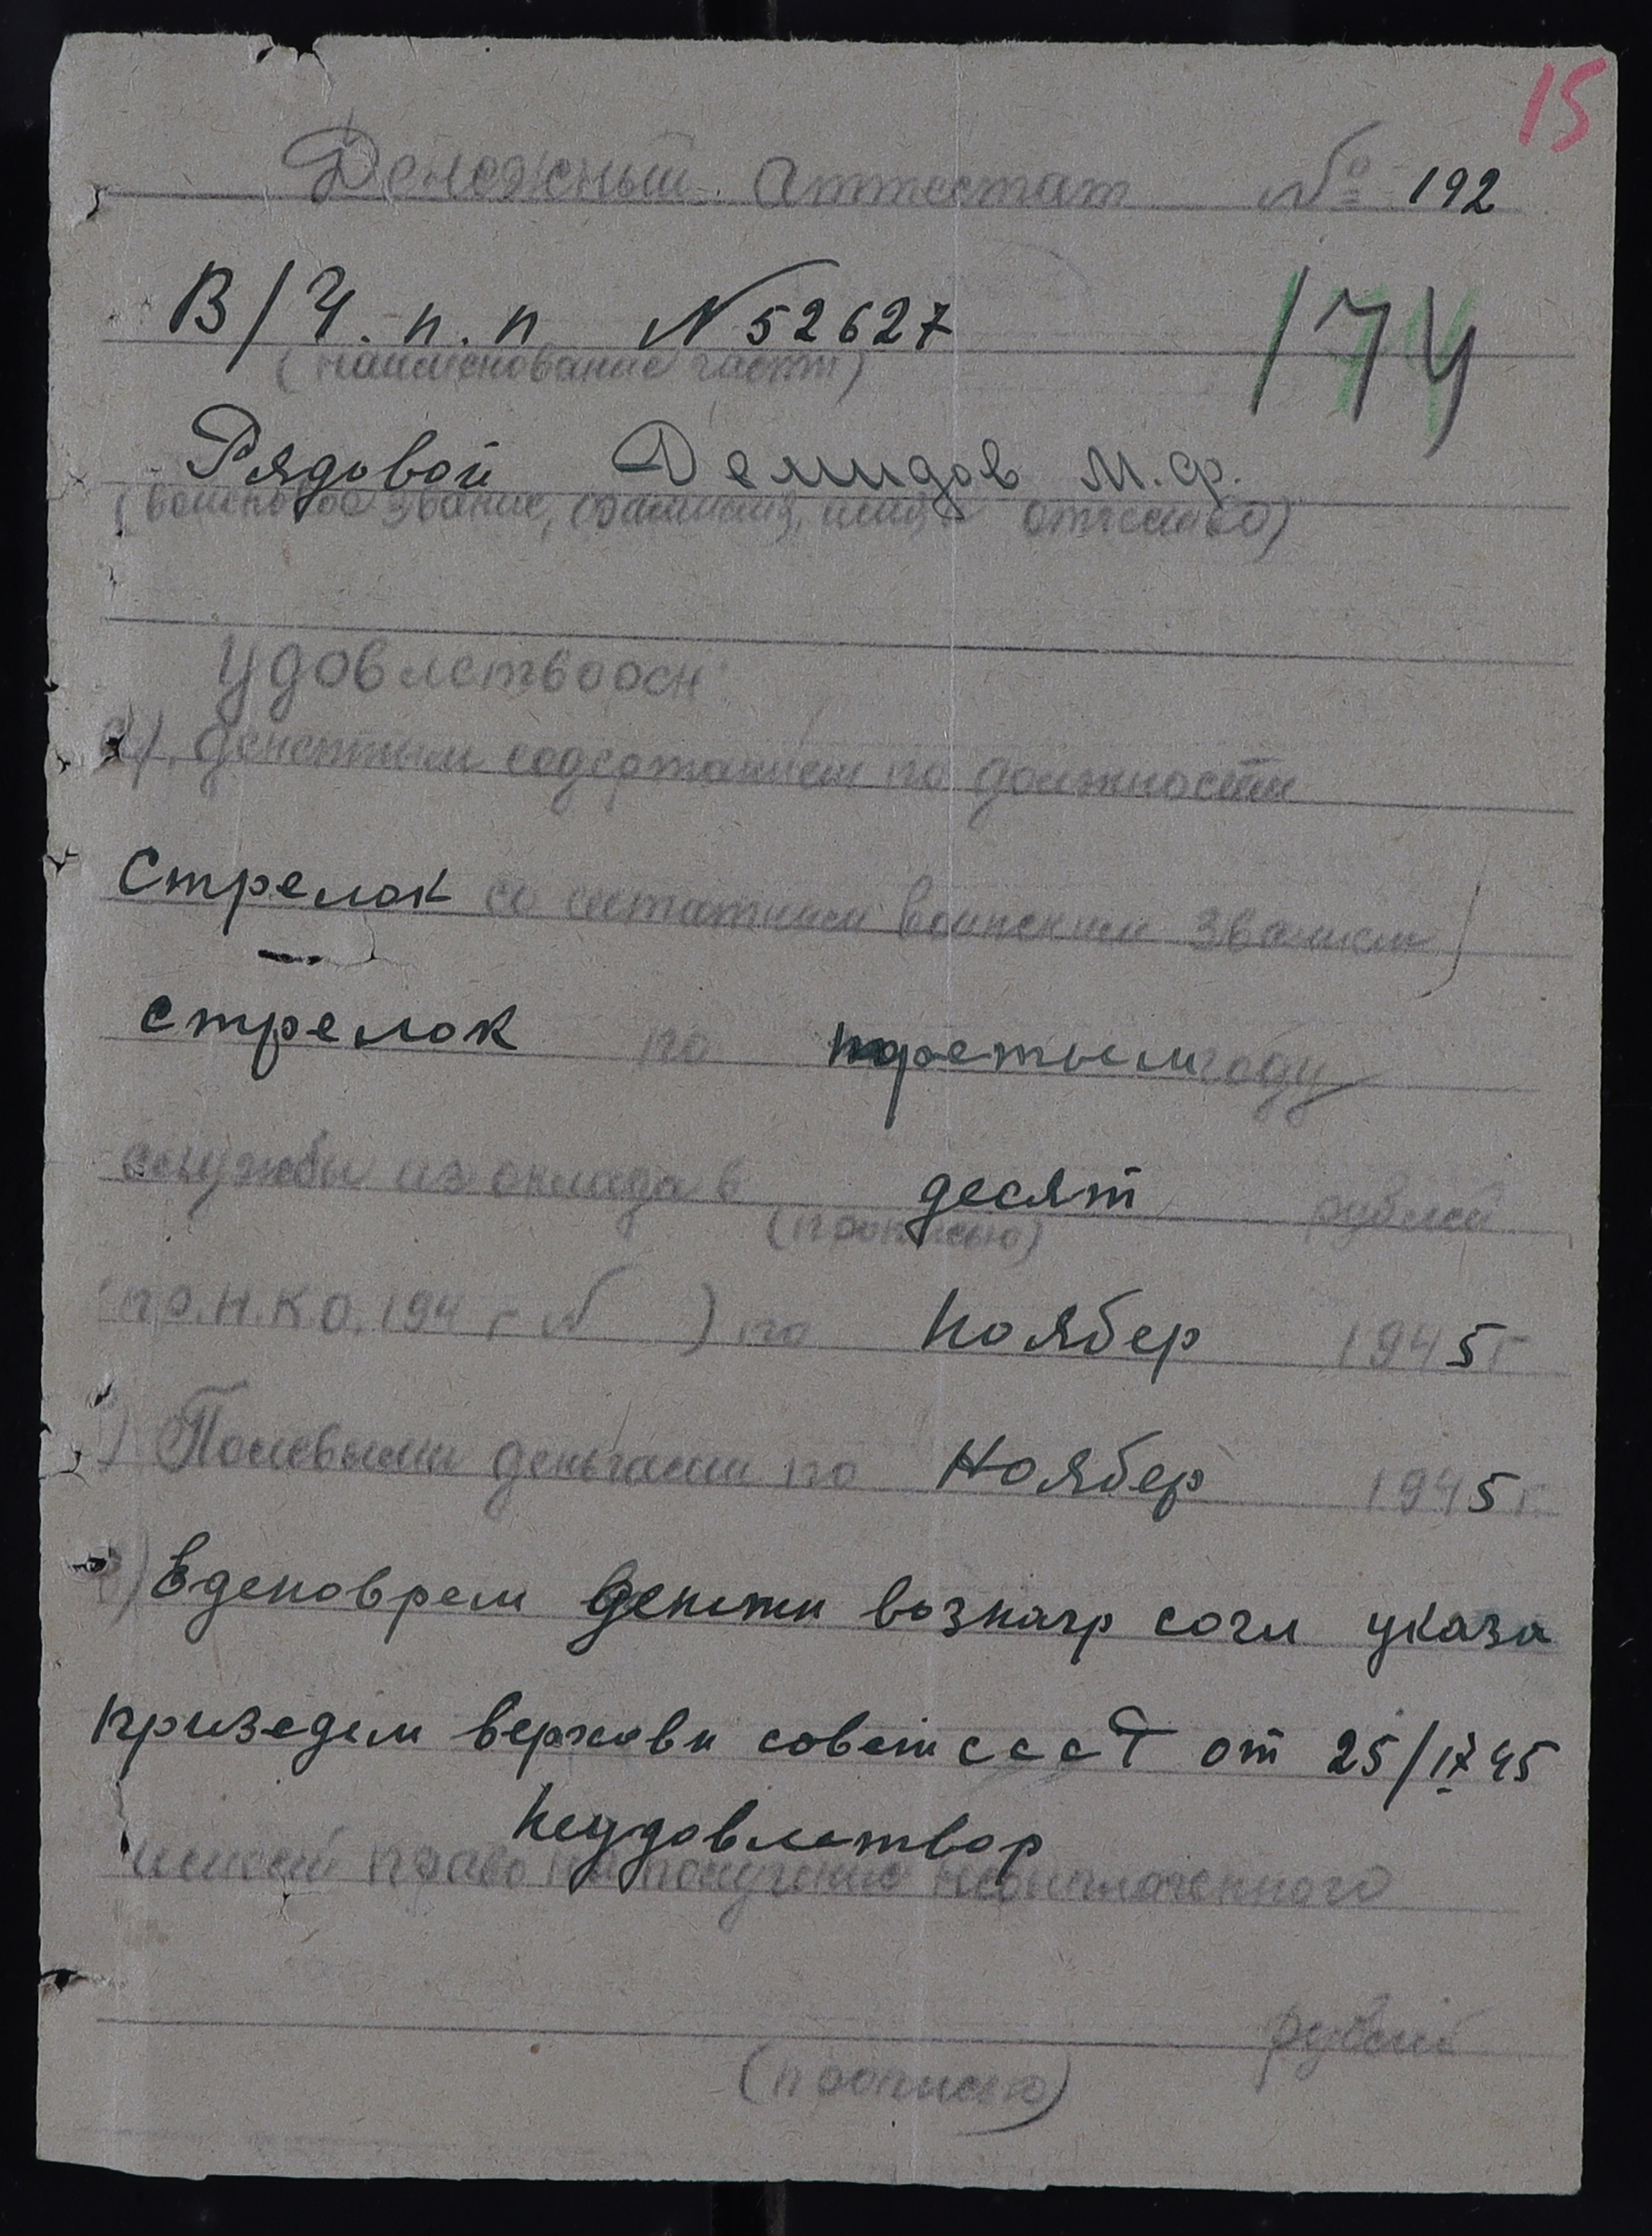 15
Денежный аттестат № 192
В/Ч. п. п N 52627
174
(наименование части)
Рядовой Демидов М. Ф.
(воинское звание, фамилия, имя, отчество)
удовлетворен
а) денежным содержанием по должности
Стрелок со штатным воинским званием)
стрелок по третьем году
службы из оклада в десят рублей
(прописью)
пр. Н.К.О. 194 г N ) по Ноябер 1945 г
) Полевыми деньгами по Ноябер 1945 г.
) Еденоврем денежн вознагр согл указа
призедим верховн совет с с с Р от 25/IX 45
Неудовлетвор
имеет право на получение неоплаченного
рублей
(прописью)